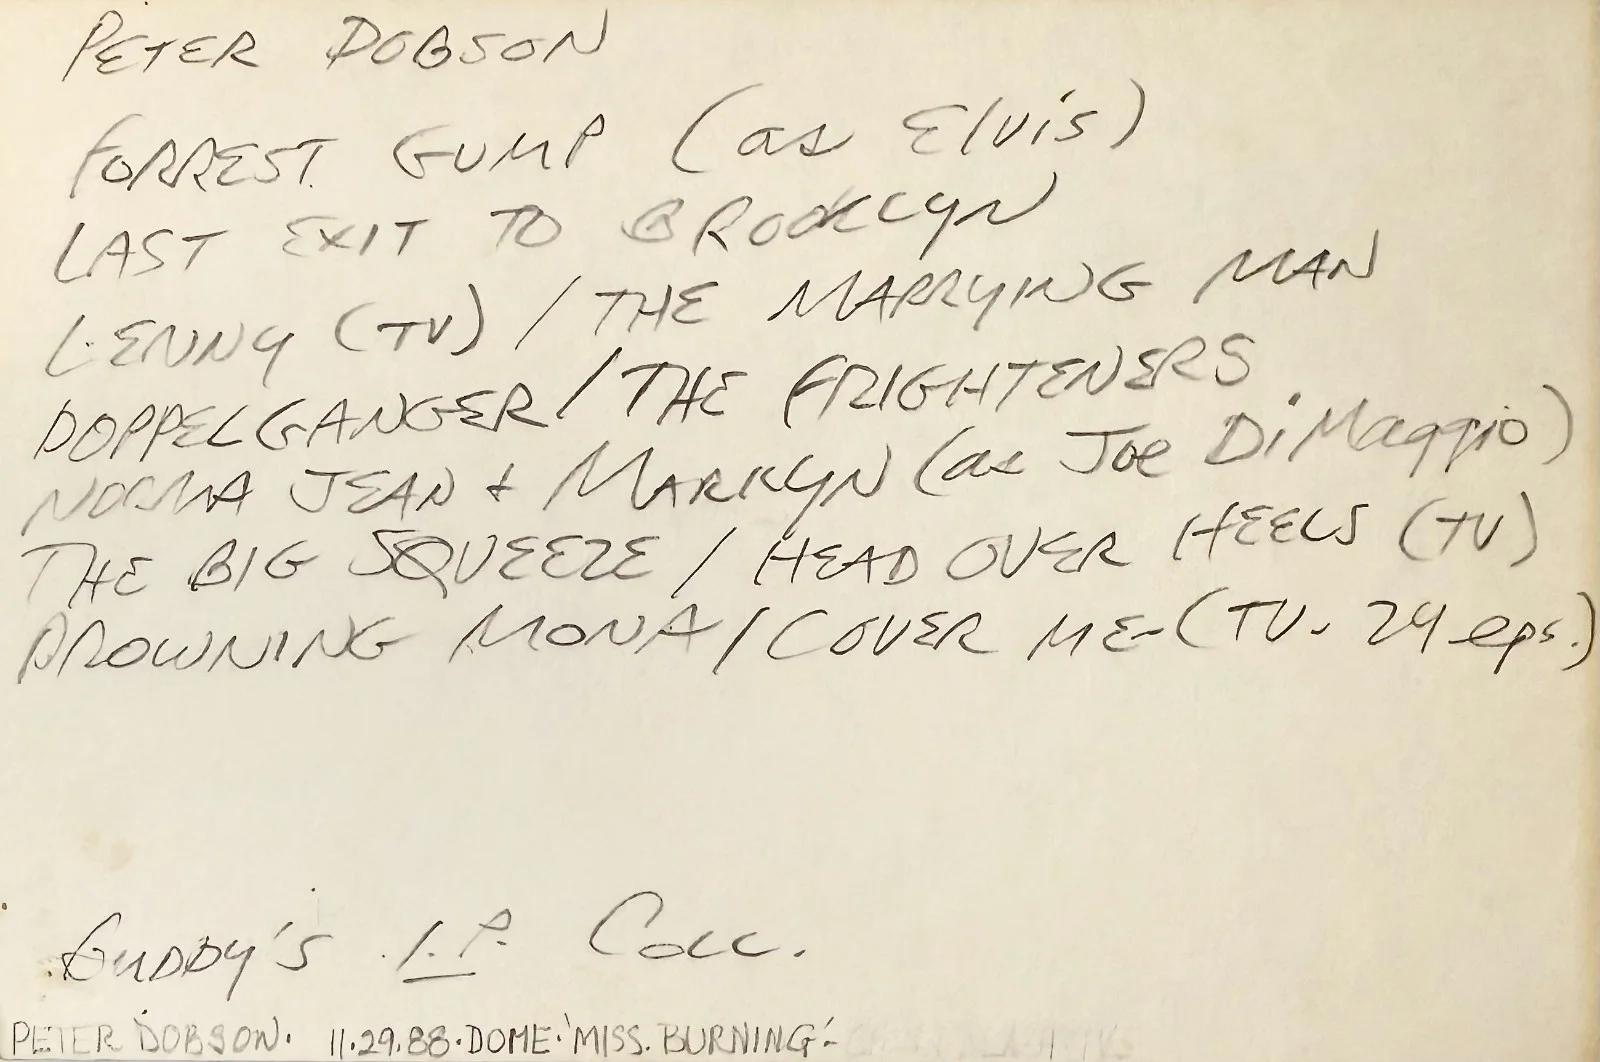 PETER DOBSON
FORREST GUMP (as Elvis)
LAST EXIT TO BROOKLYN
LENNY (TV) / THE MARRYING MAN
DOPPELGANGER / THE FRIGHTENERS
NORMA JEAN + MARILYN (as Joe DiMaggio)
THE BIG SQUEEZE / HEAD OVER HEELS (TV)
DROWNING MONA / COVER ME - (TV - 24 eps.)
I.P. COLL.
PETER DOBSON. 11.29.88. DOME. 'MISS. BURNING'-